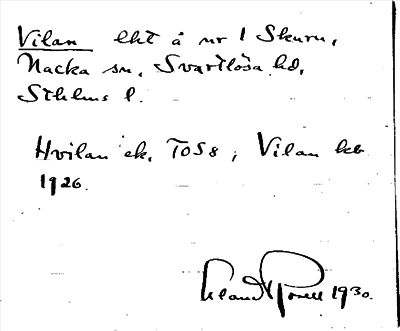 Vilan lht å nr 1 Skuru,
Nacka sn, Svartlösa hd,
Sthlms l.
Hvilan ek. T0S8; Vilan kb
1926.
1930.